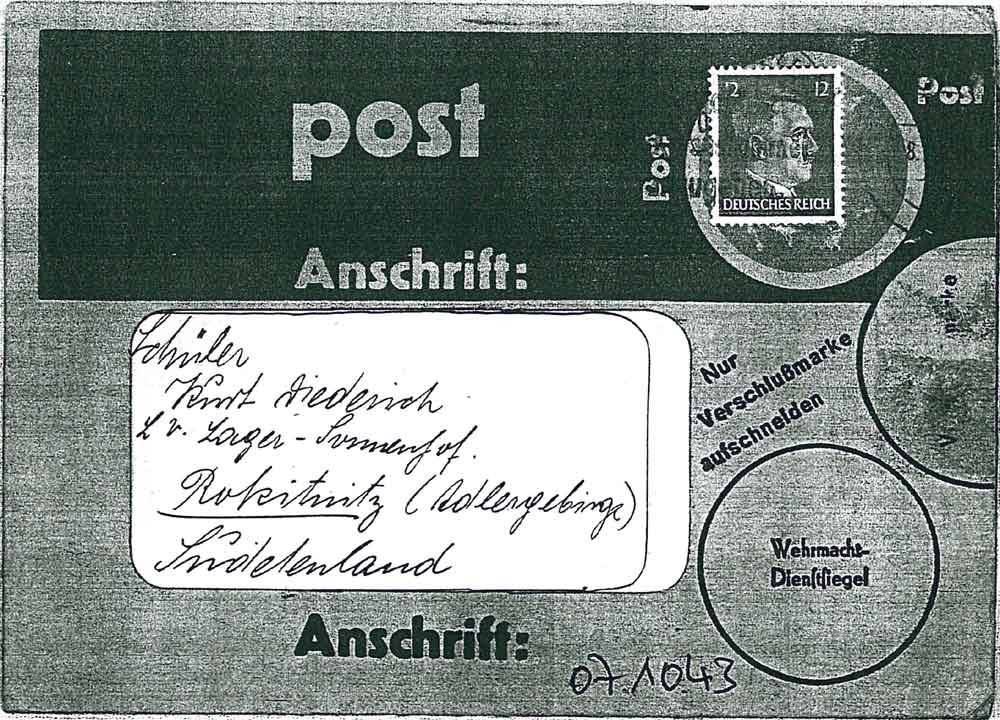 post
Post
Post
12 12
DEUTSCHES REICH
Anschrift:
Schüler
Kurt Diederich
L v. Lager - Sonnenhof.
Rokitnitz (Adlergebirge)
Sudetenland
Nur
Verschlußmarke
aufschneiden
Wehrmacht-
Dienstsiegel
Anschrift:
07.10.43